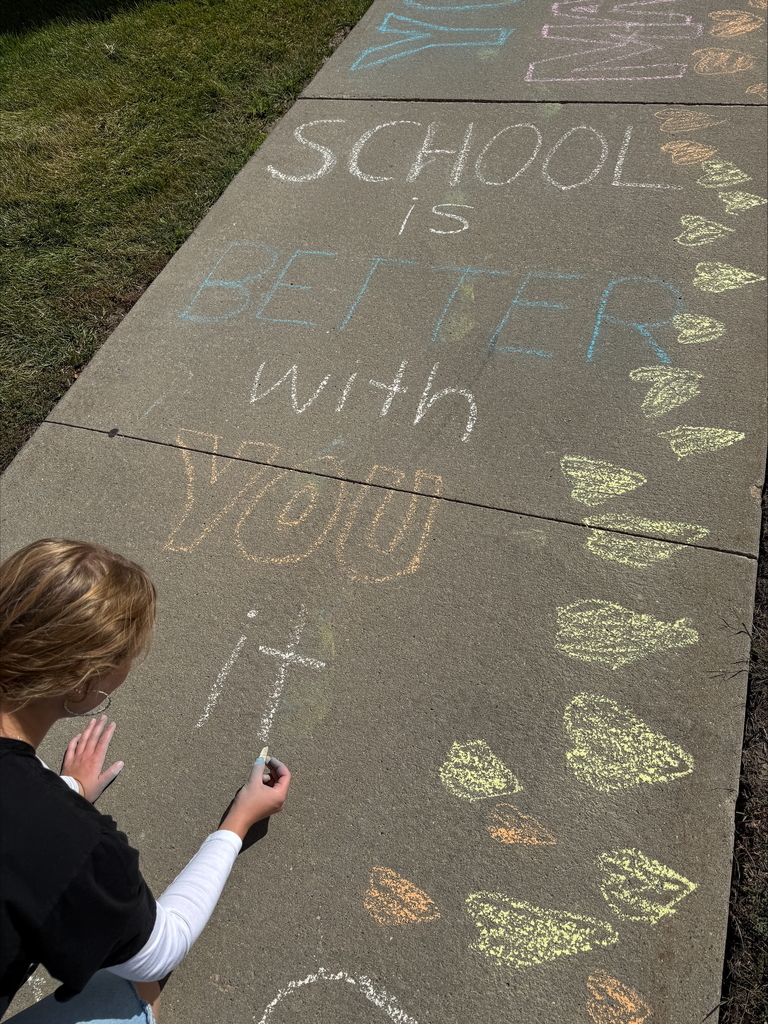 SCHOOL
is
BETTER
with
YOU
it